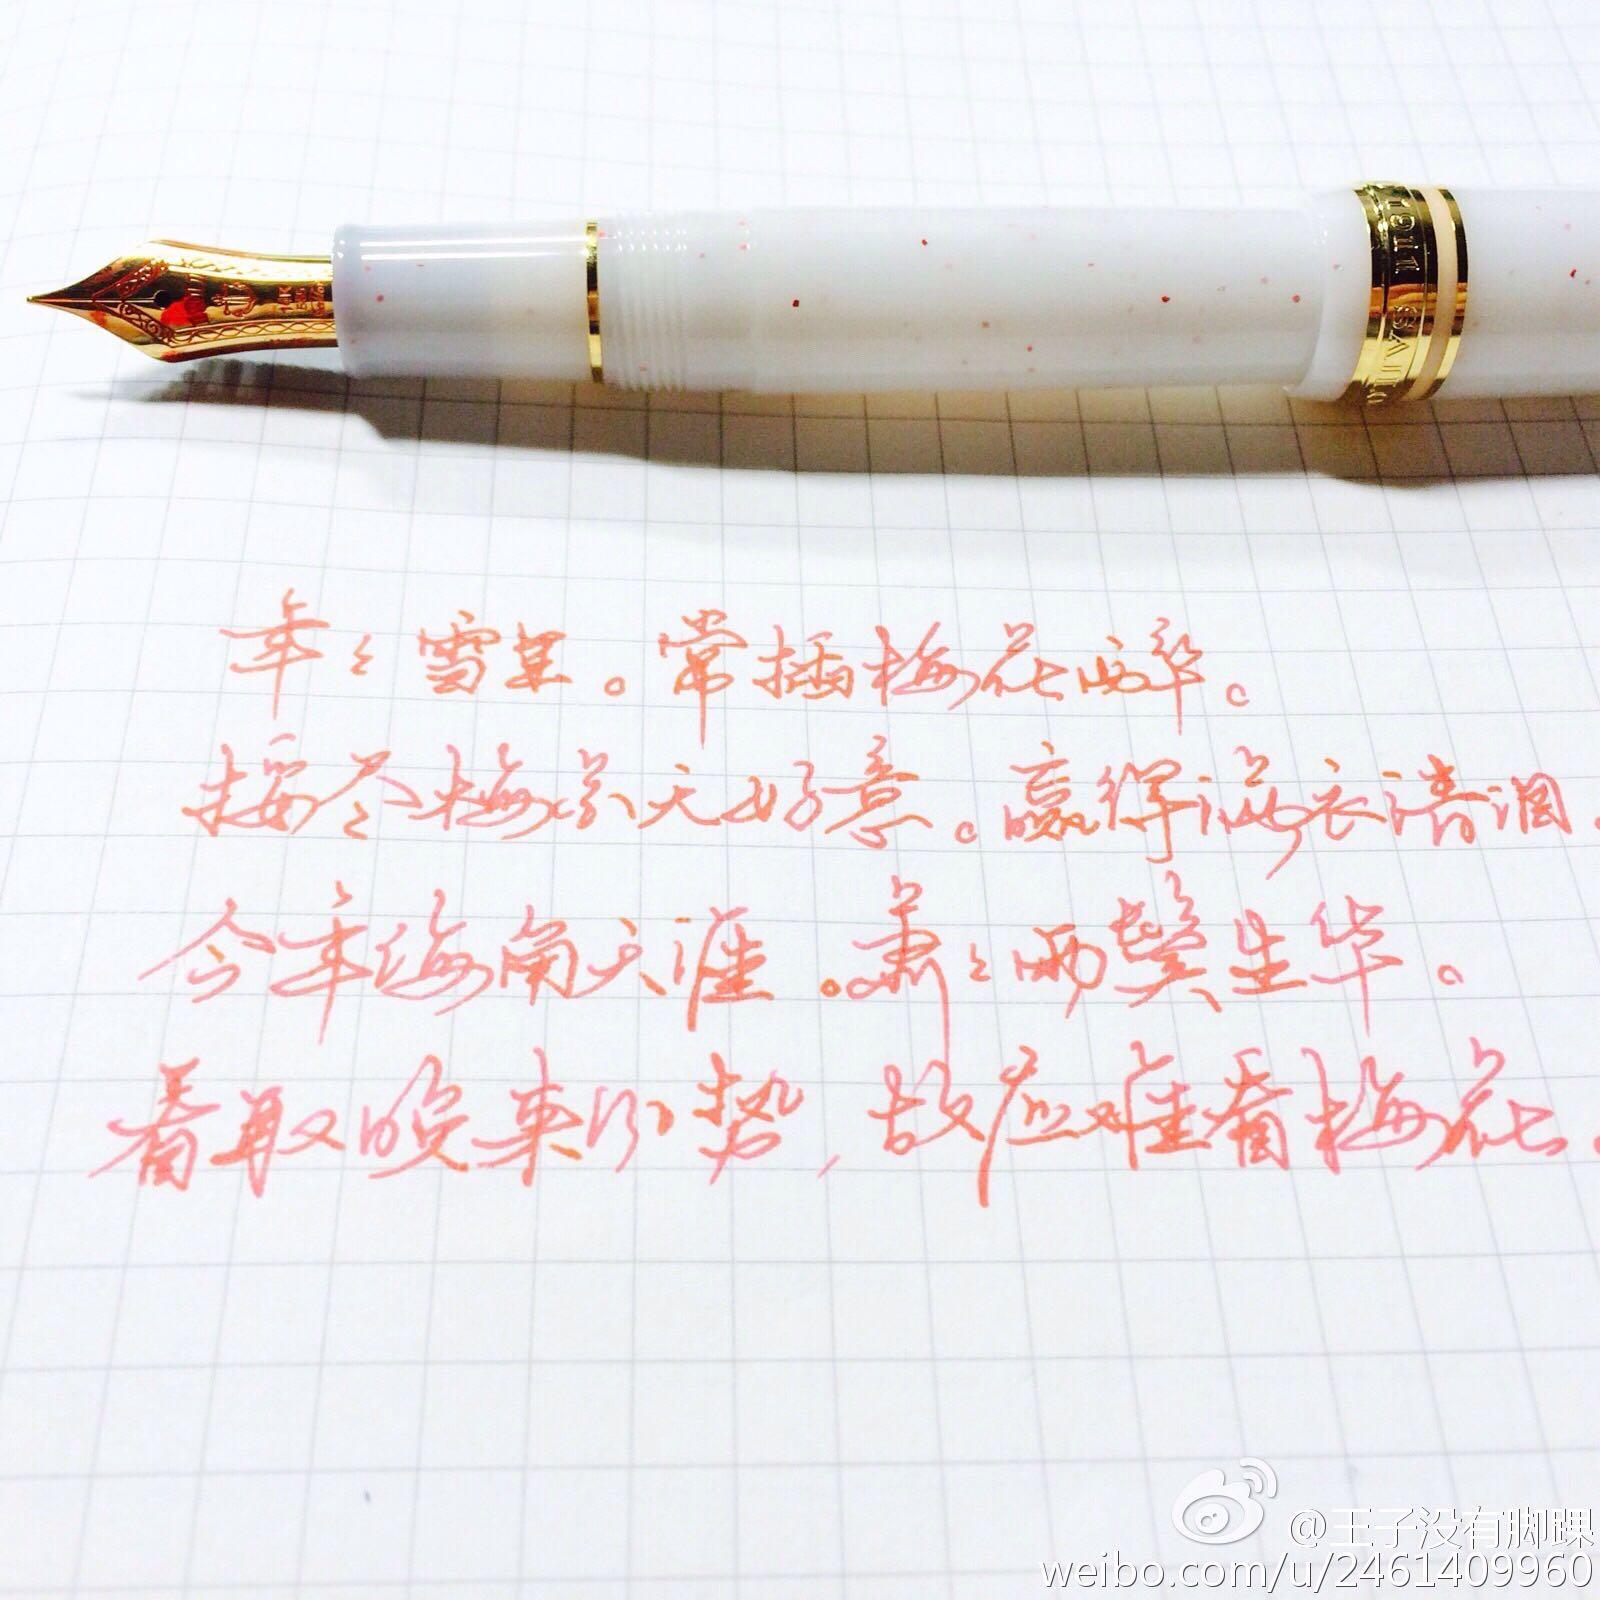 1911 SAILO
14K
年々雪里。常插梅花醉。
挼尽梅花无好意。赢得满衣清泪.
今年海角天涯。萧々两鬓生华。
看取晚来风势,故应难看梅花.
@王子没有脚踝
weibo.com/u/2461409960